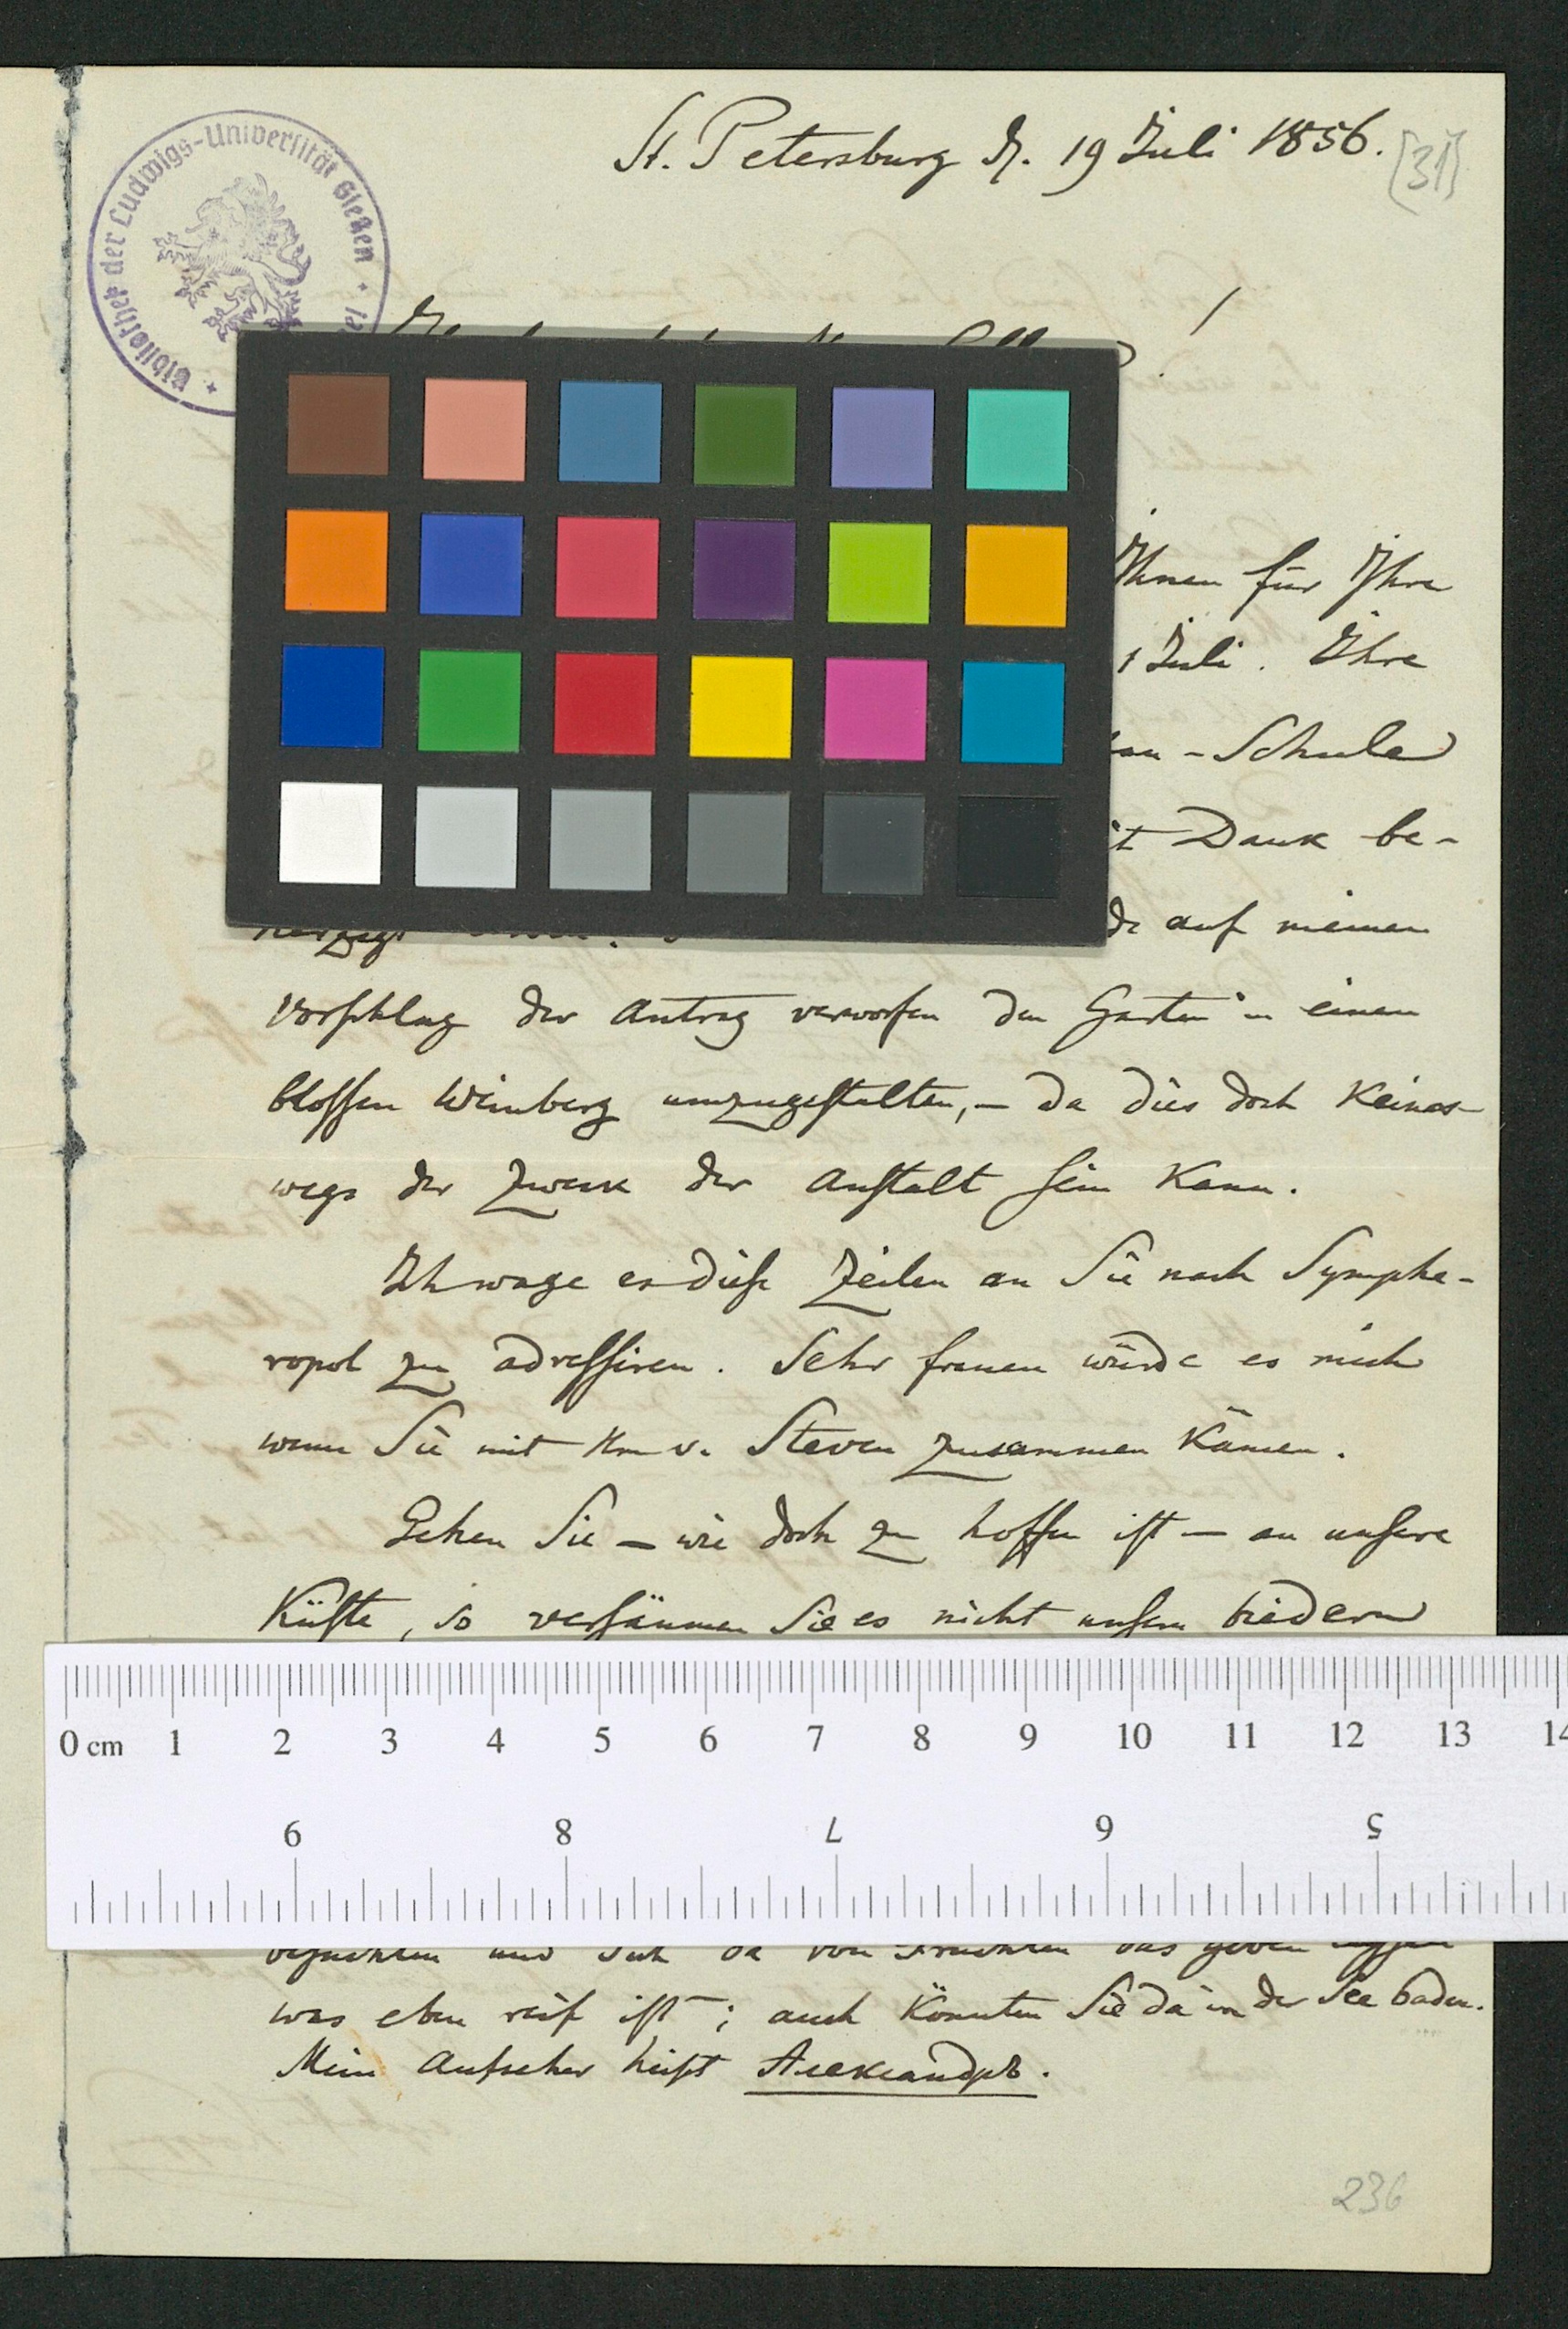 St. Petersburg d. 19 Juli 1856.
[31]
Bibliothek der Ludwigs-Universität Gießen
Ihnen für Ihre
1 Juli. Ihre
bau-Schule
it Dank be-
herzigt
auf meinen
Vorschlag der Antrag verworfen den Garten in einen
blossen Weinberg umzugestalten, – da dies doch keines-
wegs der Zweck der Anstalt sein kann.
Ich wage es diese Zeilen an Sie nach Symphe-
ropol zu adressiren. Sehr freuen würde es mich
wenn Sie mit Hrn v. Steven zusammen kämen.
Gehen Sie – wie doch zu hoffen ist – an unsere
Küste, so versäumen Sie es nicht unsern biedern
0 cm 1 2 3 4 5 6 7 8 9 10 11 12 13 14
9 8 7 6 5
und sich da von Früchten das geben lassen
was eben reif ist; auch könnten Sie da in der See baden.
Mein Aufseher heist Александръ.
236